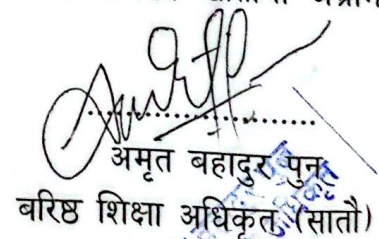 अमृत बहादुर पुन
बरिष्ठ शिक्षा अधिकृत (सातौ)